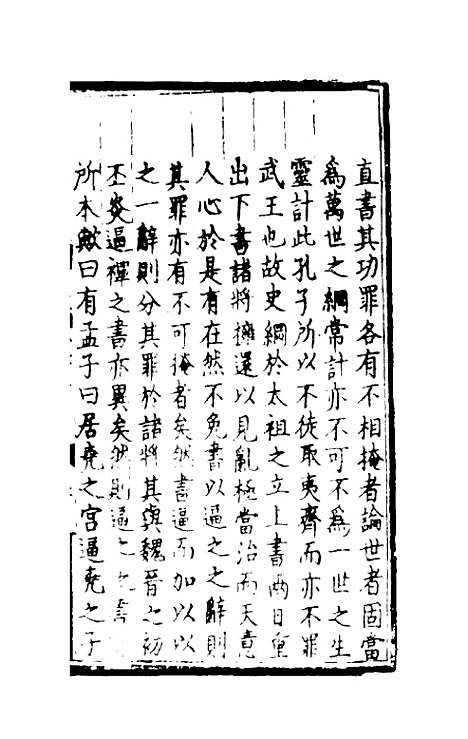 直書其功罪各有不相掩者論世者固當
為萬世之綱常計亦不可不為一世之生
靈計此孔子所以不徒取夷齊而亦不罪
武王也故史綱於太祖之立上書兩日重
出下書諸將擁還以見亂極當治而天意
人心於是有在然不免書以逼之之辭則
其罪亦有不可掩者矣然書逼而加以以
之一辭則分其罪於諸將其與魏晉之初
丕炎逼禪之書亦異矣然則逼之之書
所本歟曰有孟子曰居堯之宮逼堯之子